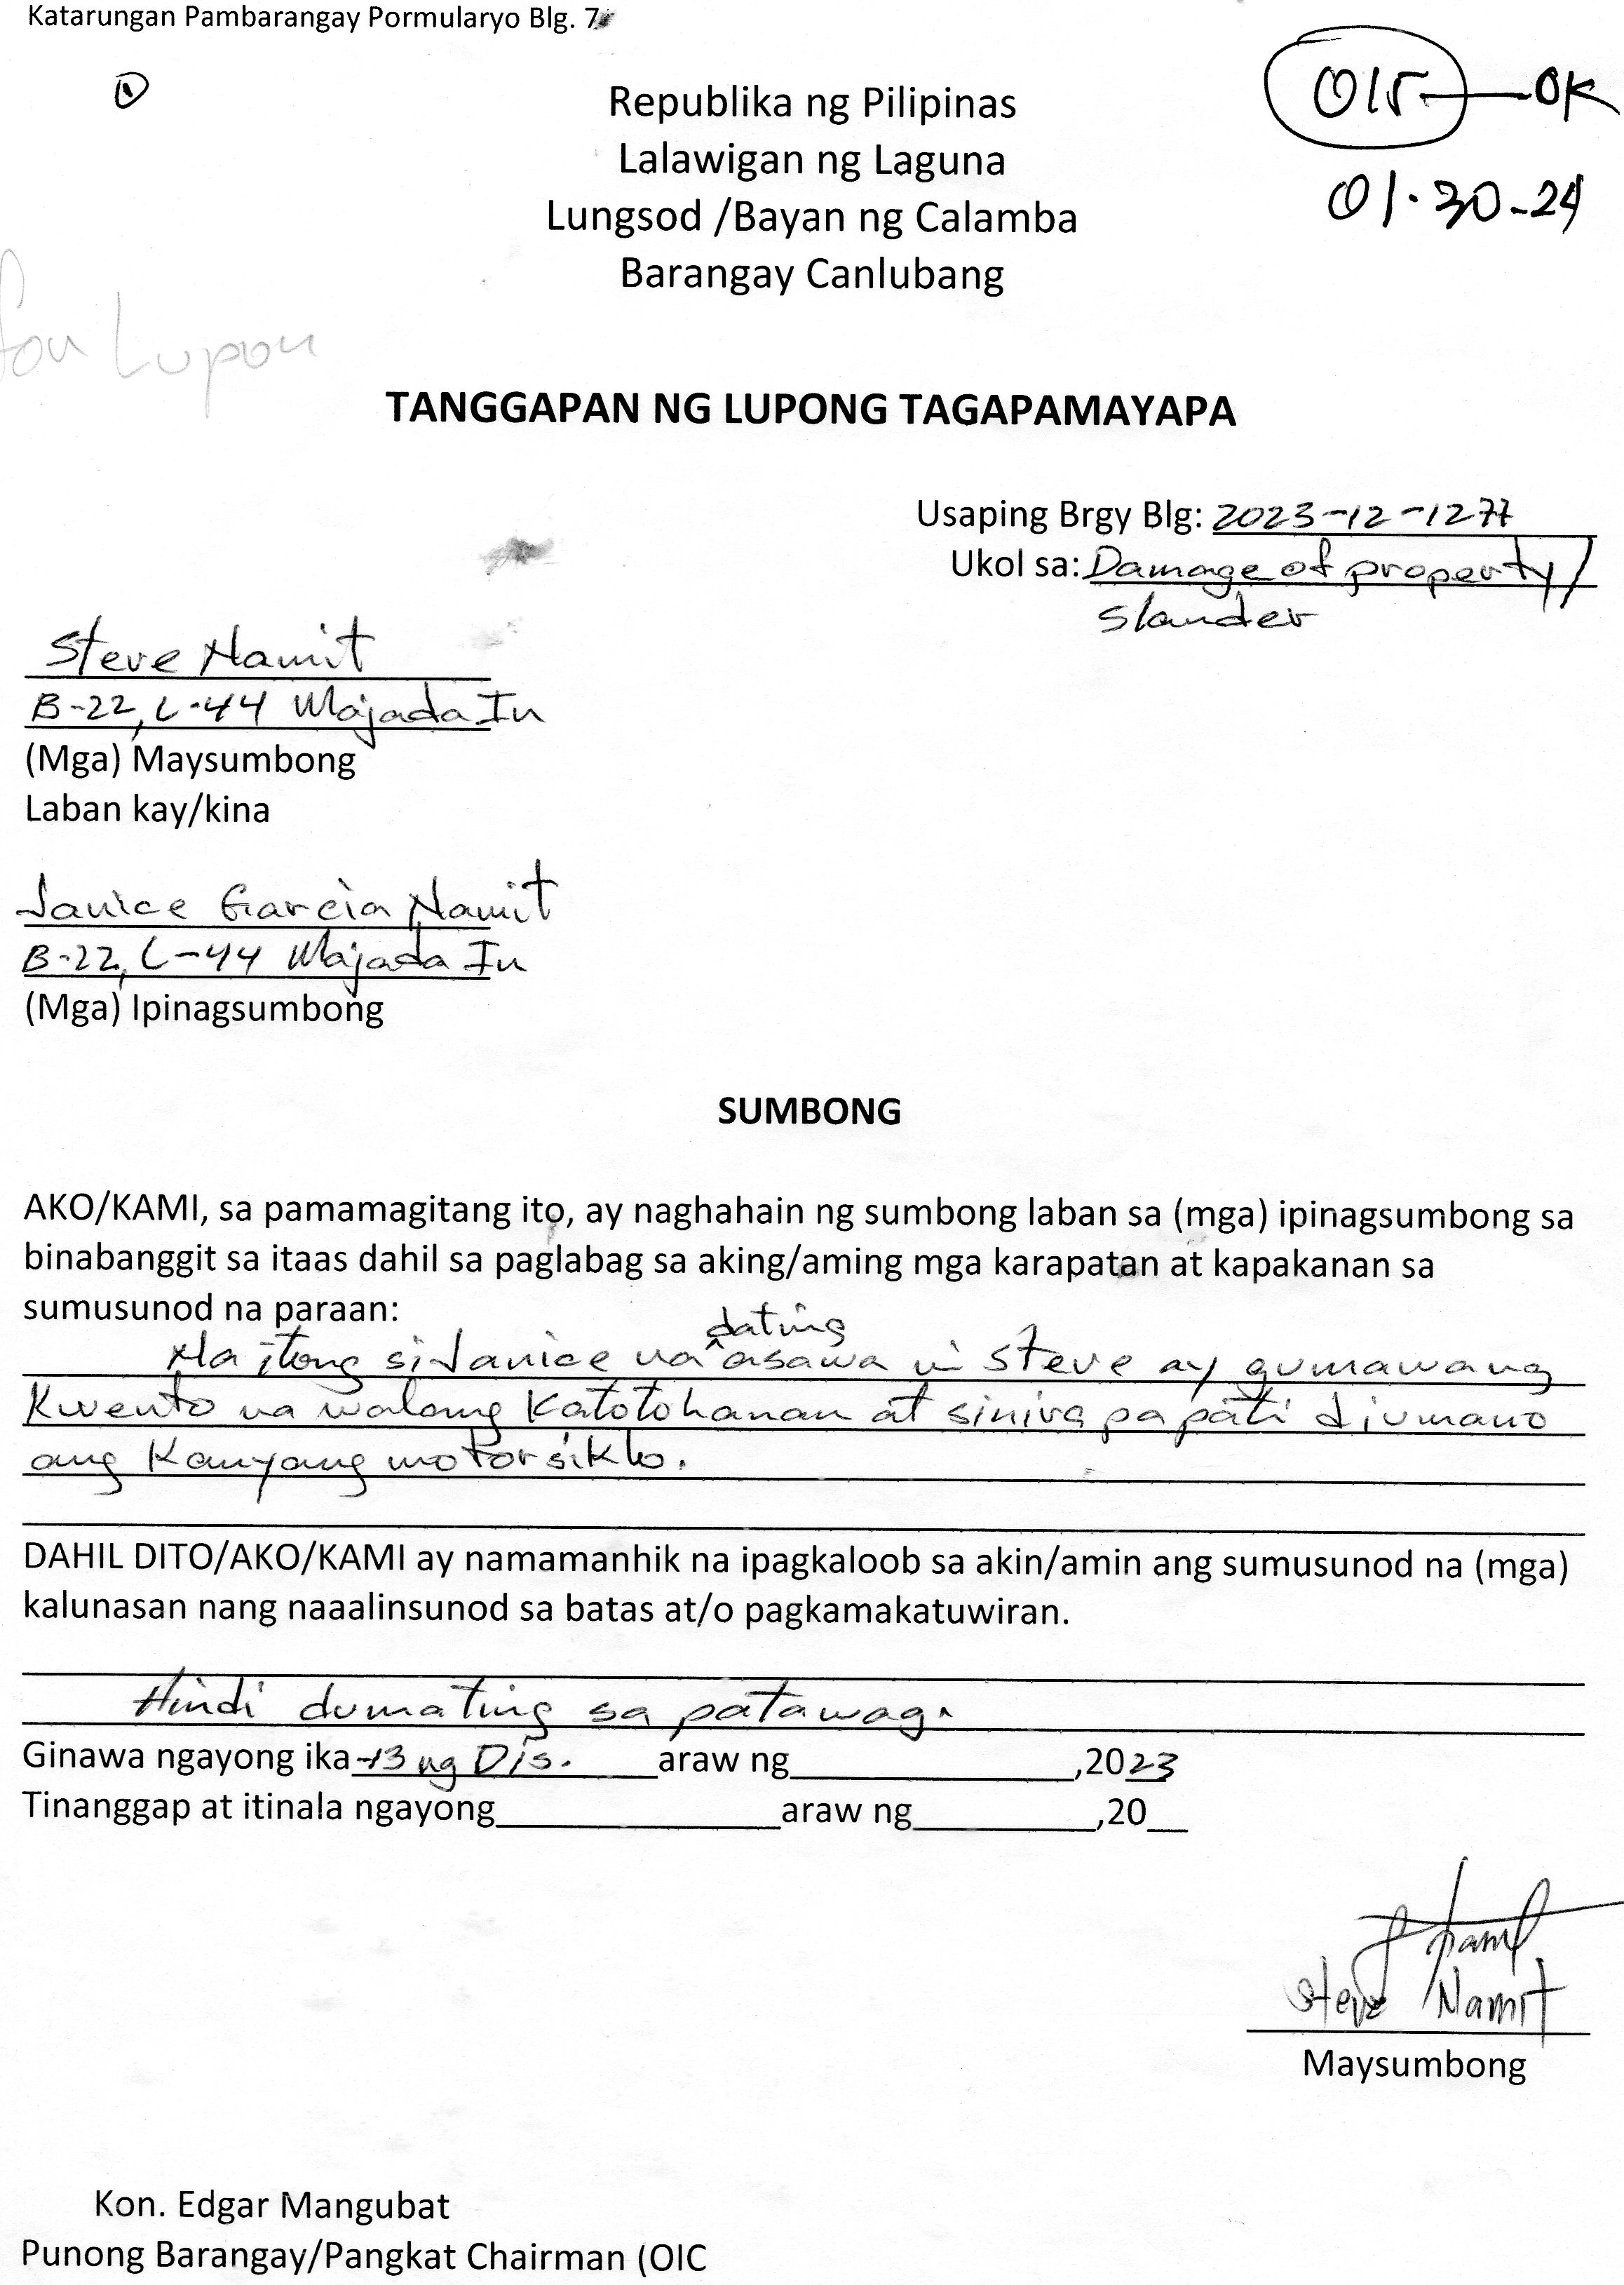 Katarungan Pambarangay Pormularyo Blg. 7
015 — OK
01-30-24
Republika ng Pilipinas
Lalawigan ng Laguna
Lungsod /Bayan ng Calamba
Barangay Canlubang
Lupon
TANGGAPAN NG LUPONG TAGAPAMAYAPA
Usaping Brgy Blg: 2023-12-1277
Ukol sa: Damage of property/
slander
Steve Namit
B-22, L-44 Majada In
(Mga) Maysumbong
Laban kay/kina
Janice Garcia Namit
B-22, L-44 Majada In
(Mga) Ipinagsumbong
SUMBONG
AKO/KAMI, sa pamamagitang ito, ay naghahain ng sumbong laban sa (mga) ipinagsumbong sa
binabanggit sa itaas dahil sa paglabag sa aking/aming mga karapatan at kapakanan sa
sumusunod na paraan:
Na itong si Janice na dating asawa ni Steve ay gumawang
Kwento na walang Katotohanan at sinira pa pati diumano
ang Kanyang motorsiklo.
DAHIL DITO/AKO/KAMI ay namamanhik na ipagkaloob sa akin/amin ang sumusunod na (mga)
kalunasan nang naaalinsunod sa batas at/o pagkamakatuwiran.
Hindi dumating sa patawag.
Ginawa ngayong ika-13 ng Dis. araw ng ,2023
Tinanggap at itinala ngayong araw ng ,20
Steve Namit
Maysumbong
Kon. Edgar Mangubat
Punong Barangay/Pangkat Chairman (OIC